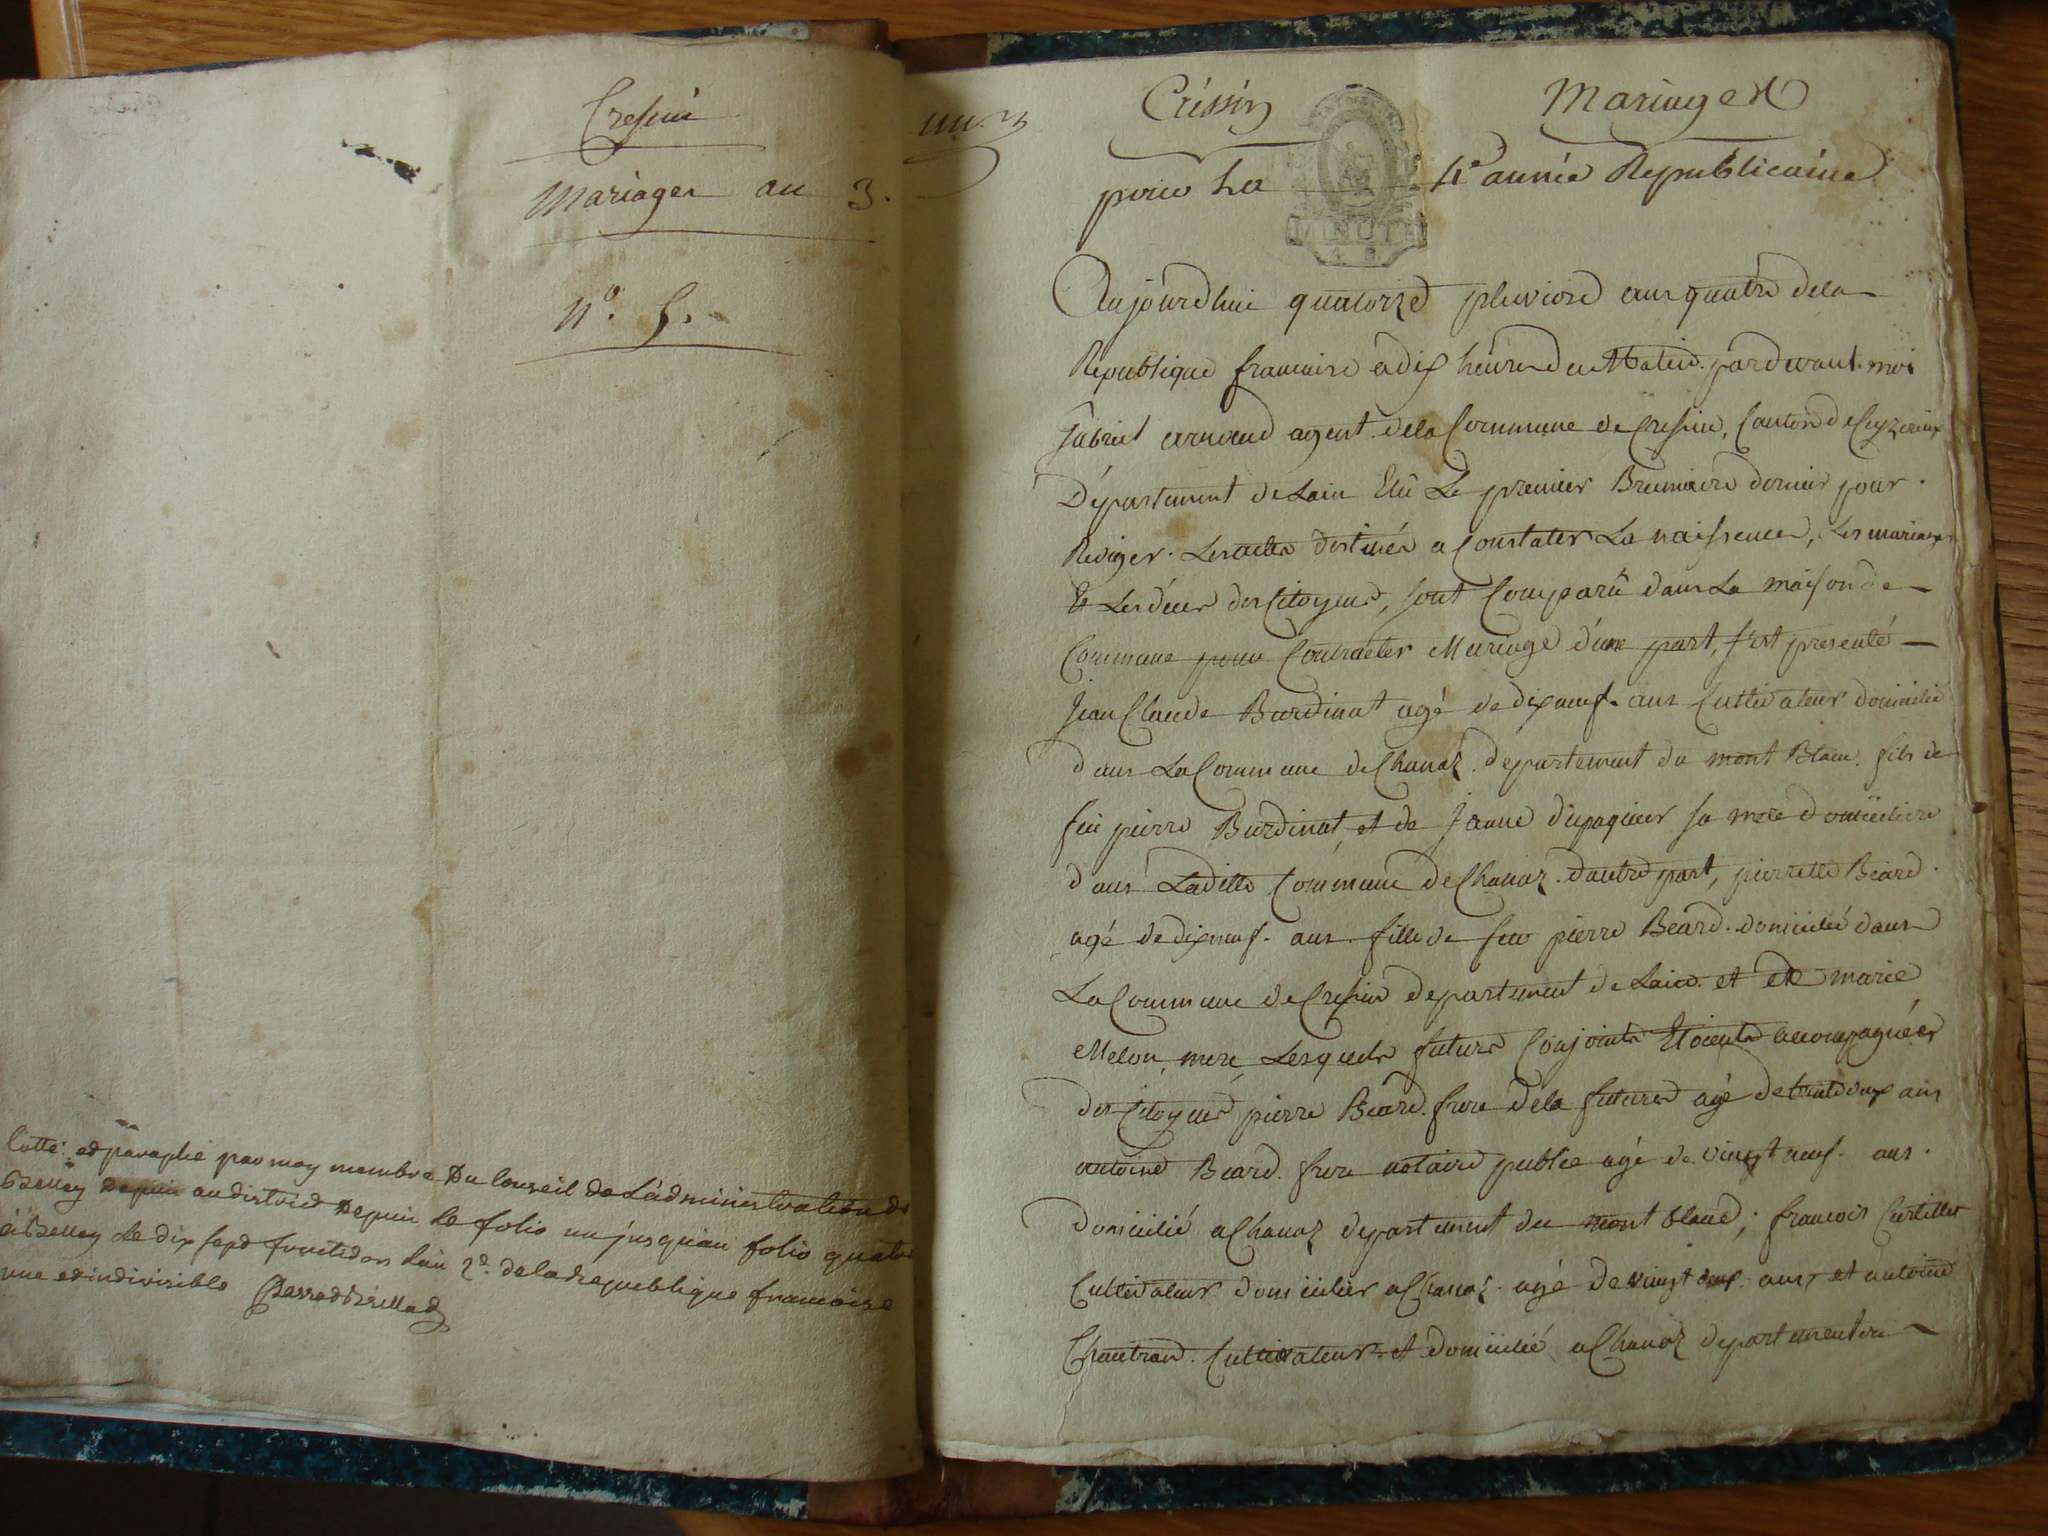 Cressin
Mariages an 3.
n.° 5.
Cotté et paraphé par moy membre Du Conseil de L'administration de
Belley Depuis au district Depuis le folio un jusquau folio quatre
à Belley le dix sept fructidor lan 2.e de la republique francaise
une et indivisible
un
Cressin Mariages
pour La 4e année Republicaine
MINUTE
Aujourdhui quatorze pluviose ans quatre dela
Republique francaise a dix heures du Matin pardevant moi
Gabriel arnaud agent dela Commune de Cressin, Canton de Ceyzerieux
Département de Lain Elû Le premier Brumaire dernier pour
Rediger Les actes destinés a Constater La naissence, Les mariages
Et Les déces des Citoyens, sont Comparû dans La maison de
Commune pour Contracter Mariage d'une part, s'est presenté
Jean Claude Burdinat agé de dixneuf ans Cultivateur domicilié
dans La Commune de Chanaz departement du mont Blanc fils de
feu pierre Burdinat, et de Jeanne dupaquier sa mere domiciliée
dans Ladite Commune de Chanaz d'autre part, pierrette Beard
agé de dixneuf ans fille de feu pierre Beard domicilié dans
La Commune de Cressin departement de Lain et de marie
Melon, mere, Lesquels futurs Conjoints Etoients accompagnées
des Citoyens pierre Beard frere dela future agé de trente deux ans
antoine Beard frere notaire public agé de vingt neuf ans
domicilié a Chanaz departement du mont blanc; francois Curtillet
Cultivateur domicilier a Chanaz agé de vingt ans, et antoine
Chautrand Cultivateur et domicilié a Chanaz departement du